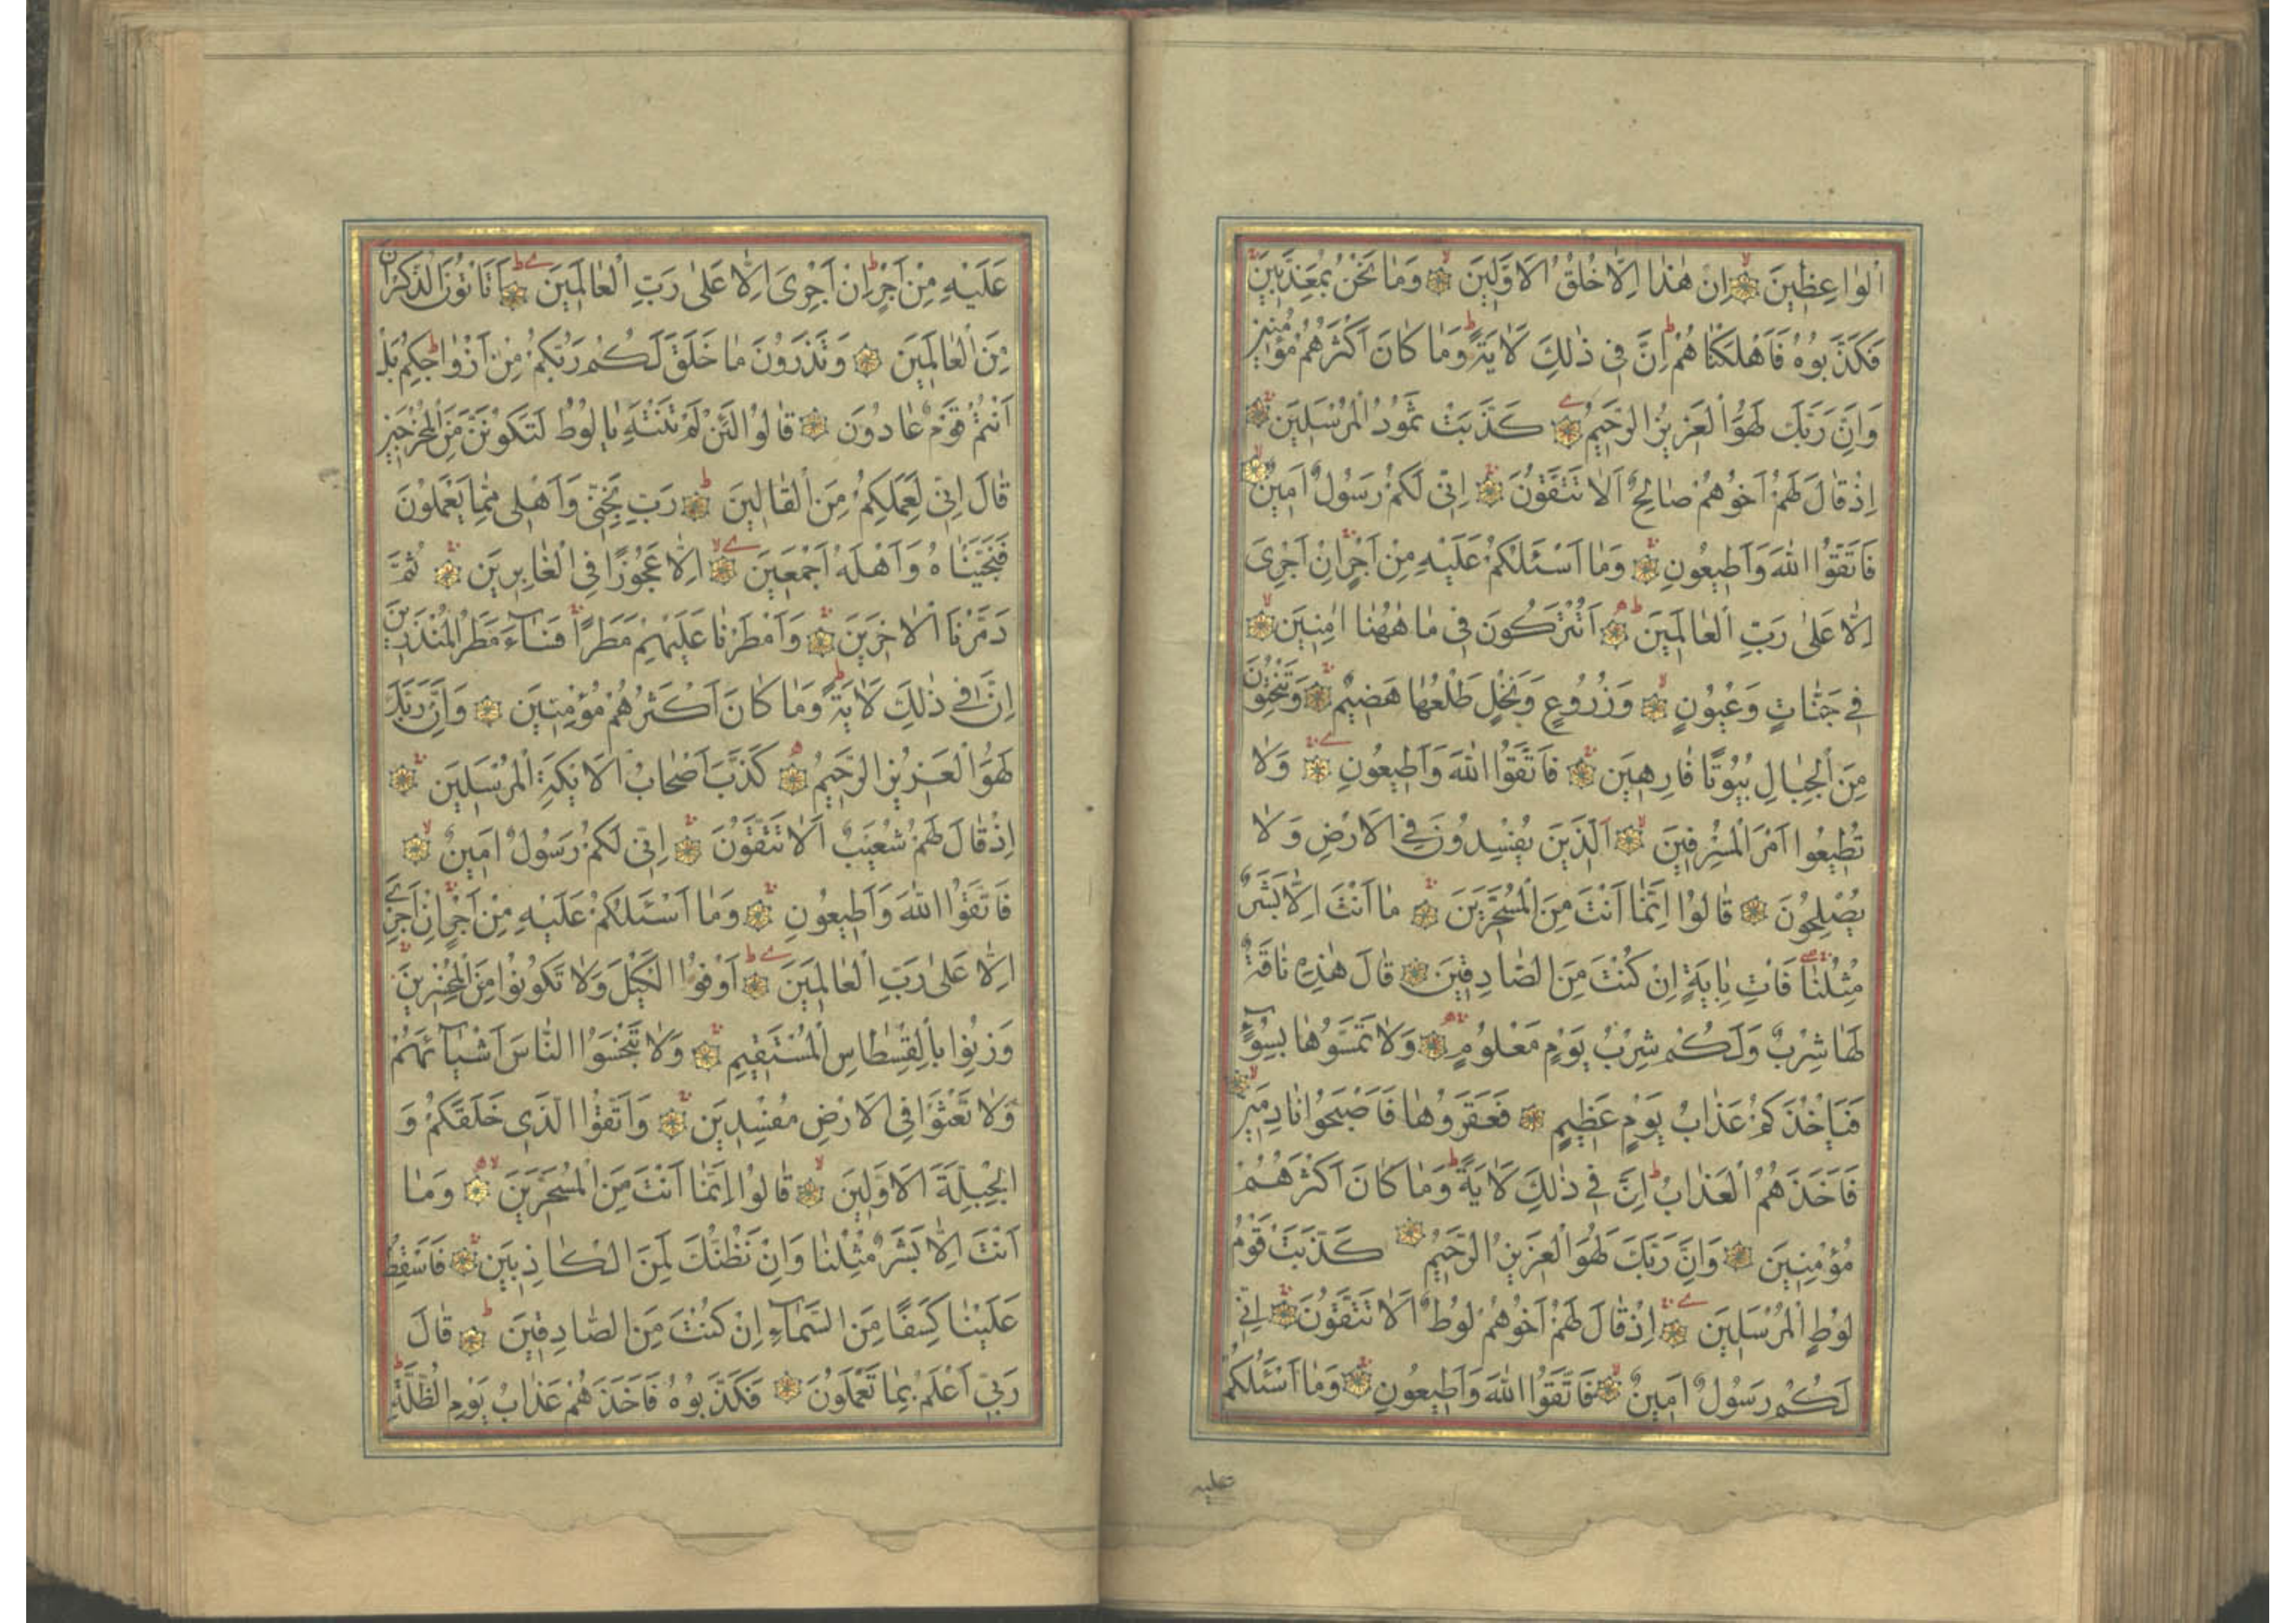 الْوَاعِظِينَ اِنْ هٰذَا اِلَّا خُلُقُ الْاَوَّلِينَ وَمَا نَحْنُ بِمُعَذَّبِينَ
فَكَذَّبُوهُ فَاَهْلَكْنَاهُمْ اِنَّ فِي ذٰلِكَ لَاٰيَةً وَمَا كَانَ اَكْثَرُهُمْ مُؤْمِنِينَ
وَاِنَّ رَبَّكَ لَهُوَ الْعَزِيزُ الرَّحِيمُ كَذَّبَتْ ثَمُودُ الْمُرْسَلِينَ
اِذْ قَالَ لَهُمْ اَخُوهُمْ صَالِحٌ اَلَا تَتَّقُونَ اِنِّي لَكُمْ رَسُولٌ اَمِينٌ
فَاتَّقُوا اللّٰهَ وَاَطِيعُونِ وَمَا اَسْئَلُكُمْ عَلَيْهِ مِنْ اَجْرٍ اِنْ اَجْرِيَ
اِلَّا عَلٰى رَبِّ الْعَالَمِينَ اَتُتْرَكُونَ فِي مَا هٰهُنَا اٰمِنِينَ
فِي جَنَّاتٍ وَعُيُونٍ وَزُرُوعٍ وَنَخْلٍ طَلْعُهَا هَضِيمٌ وَتَنْحِتُونَ
مِنَ الْجِبَالِ بُيُوتًا فَارِهِينَ فَاتَّقُوا اللّٰهَ وَاَطِيعُونِ وَلَا
تُطِيعُوا اَمْرَ الْمُسْرِفِينَ اَلَّذِينَ يُفْسِدُونَ فِي الْاَرْضِ وَلَا
يُصْلِحُونَ قَالُوا اِنَّمَا اَنْتَ مِنَ الْمُسَحَّرِينَ مَا اَنْتَ اِلَّا بَشَرٌ
مِثْلُنَا فَاْتِ بِاٰيَةٍ اِنْ كُنْتَ مِنَ الصَّادِقِينَ قَالَ هٰذِهِ نَاقَةٌ
لَهَا شِرْبٌ وَلَكُمْ شِرْبُ يَوْمٍ مَعْلُومٍ وَلَا تَمَسُّوهَا بِسُوءٍ
فَيَاْخُذَكُمْ عَذَابُ يَوْمٍ عَظِيمٍ فَعَقَرُوهَا فَاَصْبَحُوا نَادِمِينَ
فَاَخَذَهُمُ الْعَذَابُ اِنَّ فِي ذٰلِكَ لَاٰيَةً وَمَا كَانَ اَكْثَرُهُمْ
مُؤْمِنِينَ وَاِنَّ رَبَّكَ لَهُوَ الْعَزِيزُ الرَّحِيمُ كَذَّبَتْ قَوْمُ
لُوطٍ الْمُرْسَلِينَ اِذْ قَالَ لَهُمْ اَخُوهُمْ لُوطٌ اَلَا تَتَّقُونَ اِنِّي
لَكُمْ رَسُولٌ اَمِينٌ فَاتَّقُوا اللّٰهَ وَاَطِيعُونِ وَمَا اَسْئَلُكُمْ
عليه
عَلَيْهِ مِنْ اَجْرٍ اِنْ اَجْرِيَ اِلَّا عَلٰى رَبِّ الْعَالَمِينَ اَتَاْتُونَ الذُّكْرَانَ
مِنَ الْعَالَمِينَ وَتَذَرُونَ مَا خَلَقَ لَكُمْ رَبُّكُمْ مِنْ اَزْوَاجِكُمْ بَلْ
اَنْتُمْ قَوْمٌ عَادُونَ قَالُوا لَئِنْ لَمْ تَنْتَهِ يَا لُوطُ لَتَكُونَنَّ مِنَ الْمُخْرَجِينَ
قَالَ اِنِّي لِعَمَلِكُمْ مِنَ الْقَالِينَ رَبِّ نَجِّنِي وَاَهْلِي مِمَّا يَعْمَلُونَ
فَنَجَّيْنَاهُ وَاَهْلَهُ اَجْمَعِينَ اِلَّا عَجُوزًا فِي الْغَابِرِينَ ثُمَّ
دَمَّرْنَا الْاٰخَرِينَ وَاَمْطَرْنَا عَلَيْهِمْ مَطَرًا فَسَاءَ مَطَرُ الْمُنْذَرِينَ
اِنَّ فِي ذٰلِكَ لَاٰيَةً وَمَا كَانَ اَكْثَرُهُمْ مُؤْمِنِينَ وَاِنَّ رَبَّكَ
لَهُوَ الْعَزِيزُ الرَّحِيمُ كَذَّبَ اَصْحَابُ الْاَيْكَةِ الْمُرْسَلِينَ
اِذْ قَالَ لَهُمْ شُعَيْبٌ اَلَا تَتَّقُونَ اِنِّي لَكُمْ رَسُولٌ اَمِينٌ
فَاتَّقُوا اللّٰهَ وَاَطِيعُونِ وَمَا اَسْئَلُكُمْ عَلَيْهِ مِنْ اَجْرٍ اِنْ اَجْرِيَ
اِلَّا عَلٰى رَبِّ الْعَالَمِينَ اَوْفُوا الْكَيْلَ وَلَا تَكُونُوا مِنَ الْمُخْسِرِينَ
وَزِنُوا بِالْقِسْطَاسِ الْمُسْتَقِيمِ وَلَا تَبْخَسُوا النَّاسَ اَشْيَاءَهُمْ
وَلَا تَعْثَوْا فِي الْاَرْضِ مُفْسِدِينَ وَاتَّقُوا الَّذِي خَلَقَكُمْ وَ
الْجِبِلَّةَ الْاَوَّلِينَ قَالُوا اِنَّمَا اَنْتَ مِنَ الْمُسَحَّرِينَ وَمَا
اَنْتَ اِلَّا بَشَرٌ مِثْلُنَا وَاِنْ نَظُنُّكَ لَمِنَ الْكَاذِبِينَ فَاَسْقِطْ
عَلَيْنَا كِسَفًا مِنَ السَّمَاءِ اِنْ كُنْتَ مِنَ الصَّادِقِينَ قَالَ
رَبِّي اَعْلَمُ بِمَا تَعْمَلُونَ فَكَذَّبُوهُ فَاَخَذَهُمْ عَذَابُ يَوْمِ الظُّلَّةِ